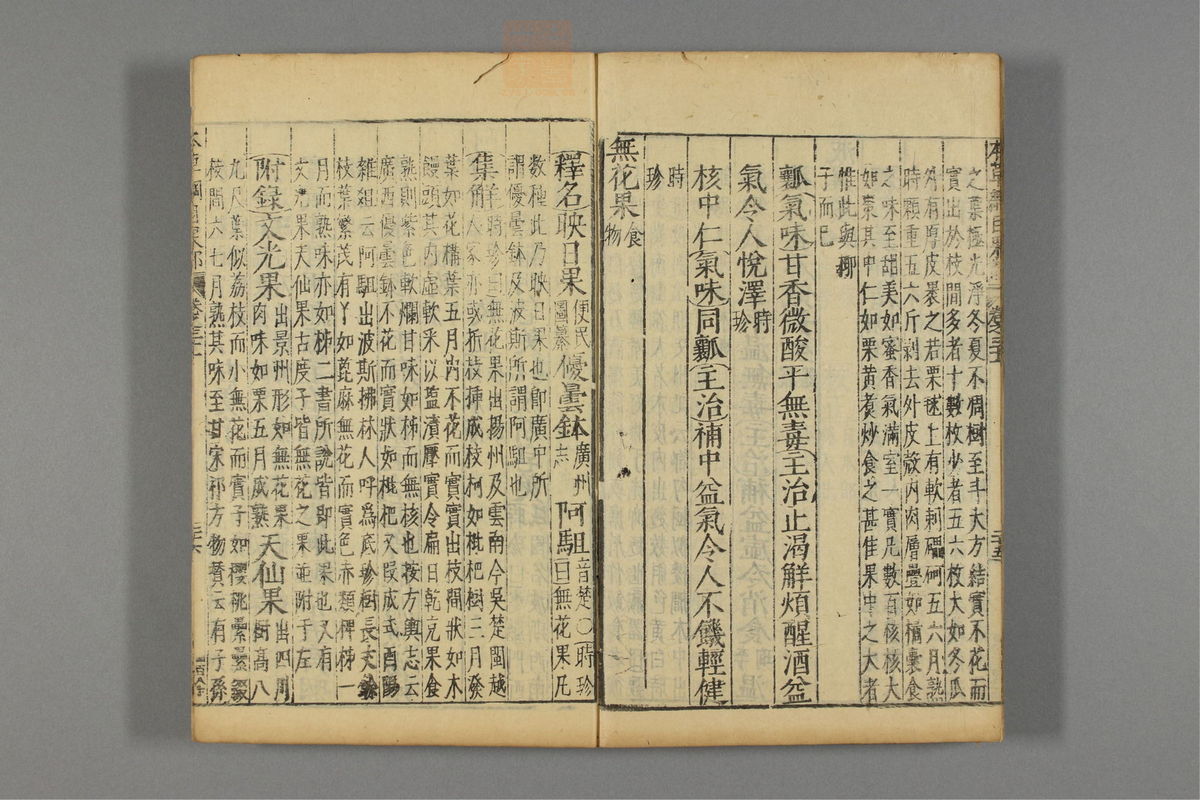 之葉極光淨冬夏不凋樹至斗大方結實不花而
實出於枝間多者十數枚少者五六枚大如冬瓜
外有厚皮裹之若栗毬上有軟刺礧砢五六月熟
時顆重五六斤剝去外皮殼內肉層疊如橘囊食
之味至甜美如蜜香氣滿室一實凡數百核核大
如棗其中仁如栗黃煮炒食之甚佳果中之大者
惟此與椰
子而已
瓤氣味甘香微酸平無毒主治止渴解煩醒酒益
氣令人悅澤時珍
核中仁氣味同瓤主治補中益氣令人不饑輕健
時珍
無花果食物
釋名映日果便民圖纂優曇鉢廣州志阿馹音楚○時珍曰無花果凡
數種此乃映日果也即廣中所
謂優曇鉢及波斯所謂阿馹也
集解時珍曰無花果出揚州及雲南今吳楚閩越
人家亦或折枝插成枝柯如枇杷樹三月發
葉如花構葉五月內不花而實實出枝間狀如木
饅頭其內虛軟采以鹽漬壓實令扁日乾充果食
熟則紫色軟爛甘味如柿而無核也按方輿志云
廣西優曇鉢不花而實狀如枇杷又段成式酉陽
雜俎云阿馹出波斯拂林人呼爲底珍樹長丈餘
枝葉繁茂有丫如蓖麻無花而實色赤類椑柿一
月而熟味亦如柿二書所說皆即此果也又有
文光果天仙果古度子皆無花之果並附于左
附錄文光果出景州形如無花果肉味如栗五月成熟天仙果出四川樹高八
九尺葉似荔枝而小無花而實子如櫻桃纍纍綴
枝間六七月熟其味至甘宋祁方物贊云有子孫